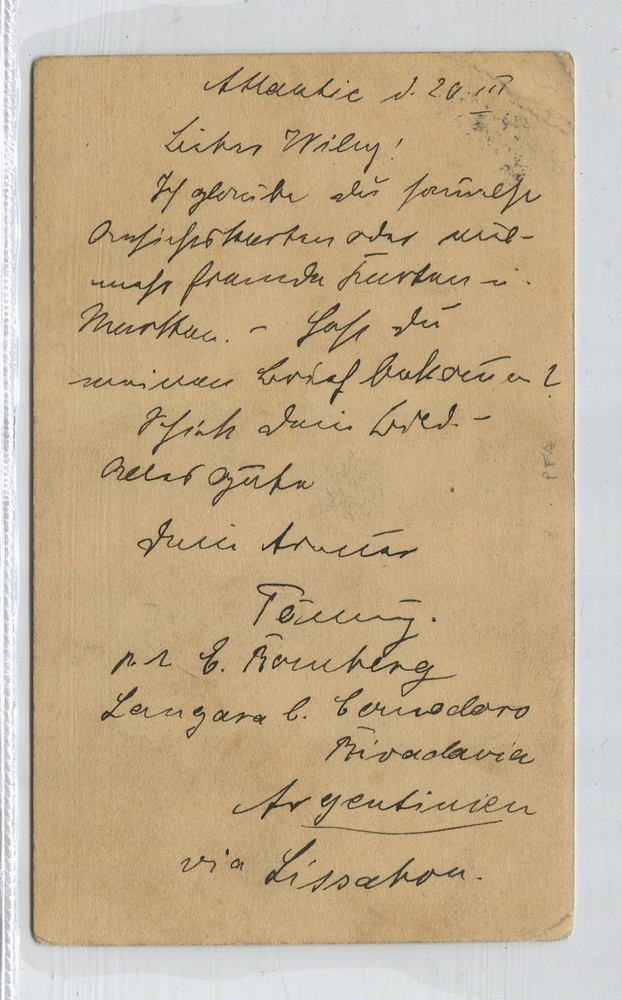 Atlantic d. 20. III
Liebes Willy!
Ich glaube du sammelst
Ansichtskarten oder
fremde Karten u.
Marken. – Hast du
meinen Brief bekom̄en?
Schick dein Bild. –
Alles Gute
dein
E. Romberg
Langara b. Comodoro
Rivadavia
Argentinien
via Lissabon.
PFA